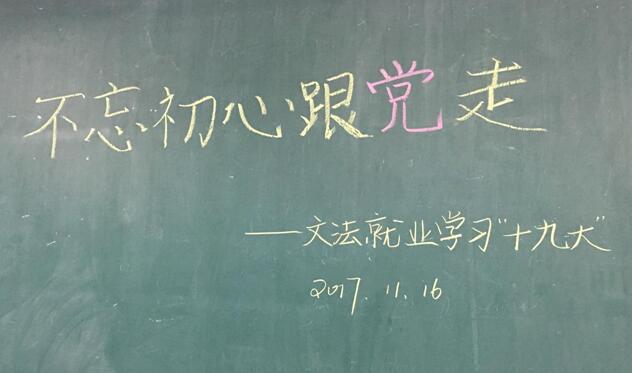 不忘初心跟党走
——文法就业学习“十九大”
2017.11.16